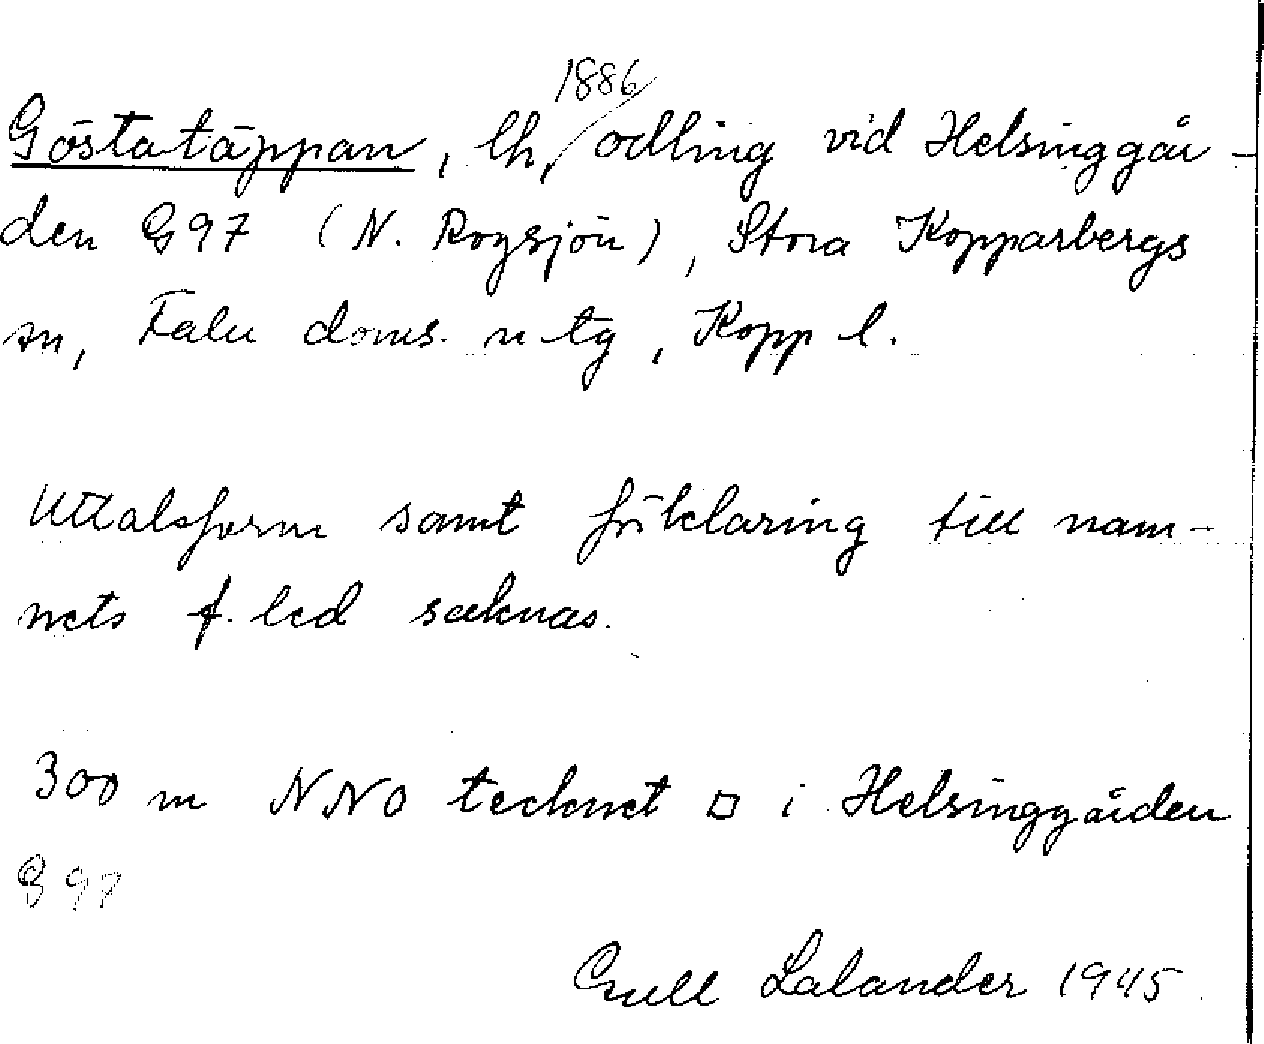 1886
Göstatäppan, lh, odling vid Helsinggår-
den G97 (N. Rogsjön), Stora Kopparbergs
sn, Falu doms. n tg, Kopp l.
Uttalsform samt förklaring till nam-
nets f. led saknas.
300 m NNO tecknet □ i Helsinggården
G 97
Gull Lalander 1945.